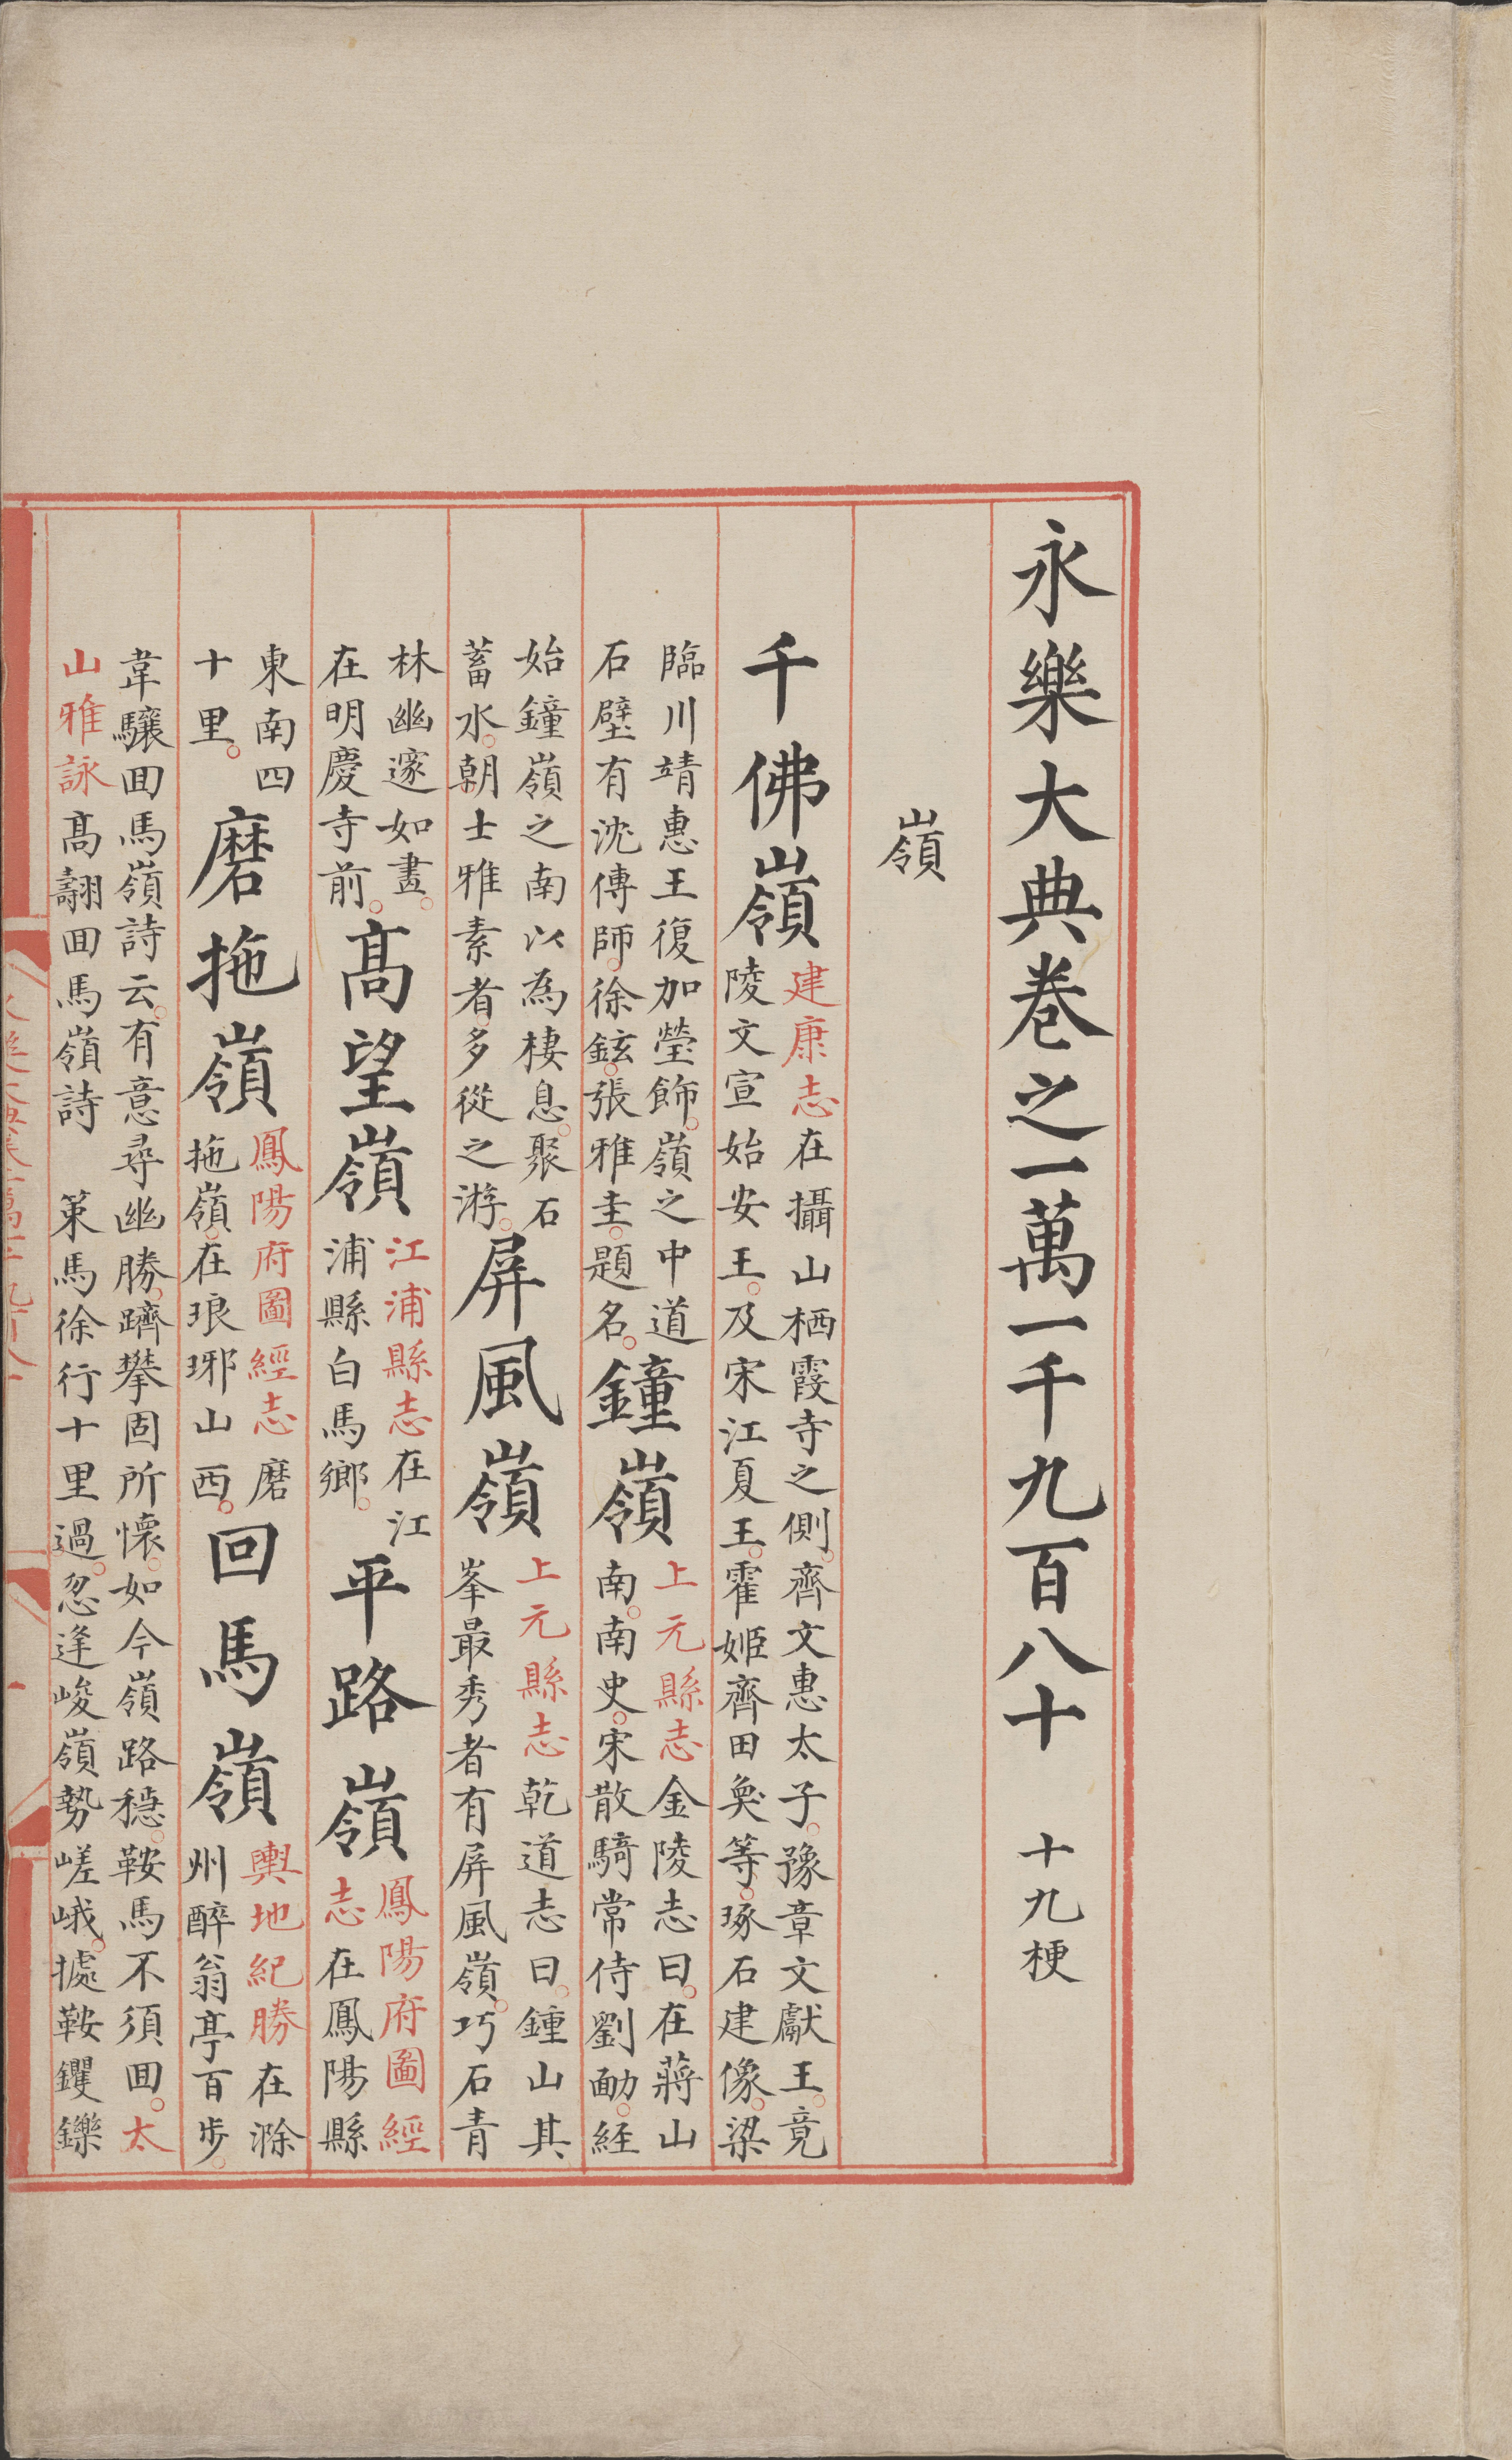 永樂大典卷之一萬一千九百八十 十九梗
嶺
千佛嶺
建康志在攝山栖霞寺之側。齊文惠太子。豫章文獻王。竟
陵文宣始安王。及宋江夏王。霍姬齊田奐等。琢石建像。梁
臨川靖惠王復加瑩飾。嶺之中道
石壁有沈傳師。徐鉉。張雅圭。題名。
鐘嶺
上元縣志金陵志曰。在蔣山
南。南史。宋散騎常侍劉勔。經
始鐘嶺之南以為棲息。聚石
蓄水。朝士雅素者。多從之游。
屏風嶺
上元縣志乾道志曰。鍾山其
峯最秀者有屏風嶺。巧石青
林幽邃如畫。
在明慶寺前。
髙望嶺
江浦縣志在江
浦縣白馬鄉。
平路嶺
鳳陽府圖經
志在鳳陽縣
東南四
十里。
磨拖嶺
鳳陽府圖經志磨
拖嶺。在琅琊山西。
回馬嶺
輿地紀勝在滁
州醉翁亭百步。
韋驤囬馬嶺詩云。有意尋幽勝。躋攀固所懷。如今嶺路穩。鞍馬不須囬。太
山雅詠髙翿囬馬嶺詩 策馬徐行十里過。忽逢峻嶺勢嵯峨。據鞍钁鑠